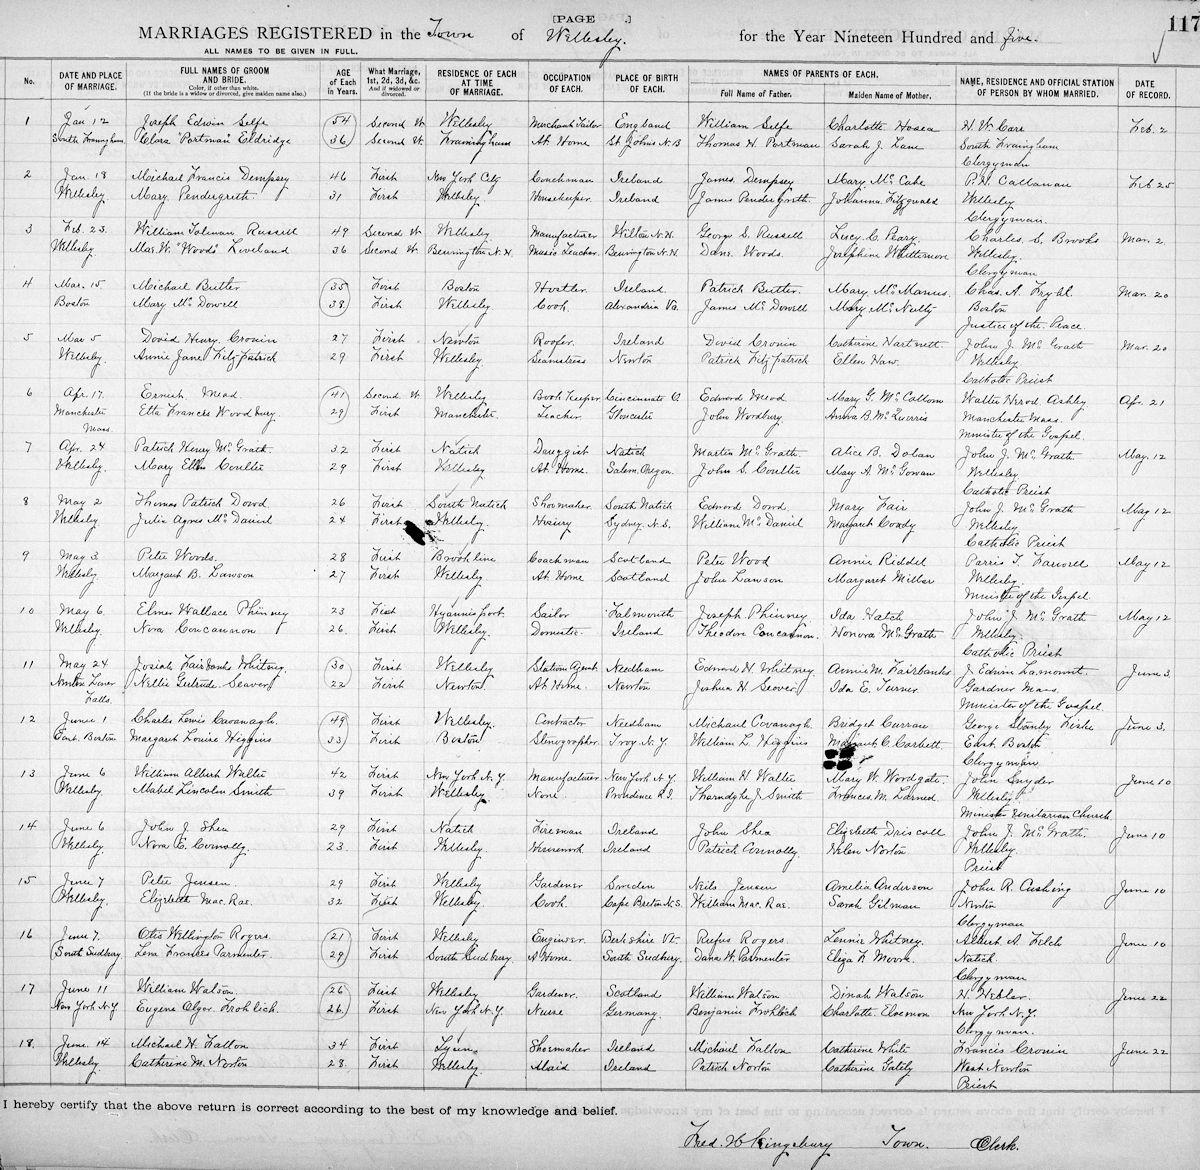 [PAGE .]
117
MARRIAGES REGISTERED in the Town of Wellesley. for the Year Nineteen Hundred and five.
ALL NAMES TO BE GIVEN IN FULL.
No. DATE AND PLACE OF MARRIAGE. FULL NAMES OF GROOM AND BRIDE. Color, if other than white. (If the bride is a widow or divorced, give maiden name also.) AGE of Each in Years. What Marriage, 1st, 2d, 3d, &c. And if widowed or divorced. RESIDENCE OF EACH AT TIME OF MARRIAGE. OCCUPATION OF EACH. PLACE OF BIRTH OF EACH. NAMES OF PARENTS OF EACH. Full Name of Father. Maiden Name of Mother. NAME, RESIDENCE AND OFFICIAL STATION OF PERSON BY WHOM MARRIED. DATE OF RECORD.
1 Jan 12 Joseph Edwin Selfe 54 Second W. Wellesley Merchant Tailor England William Selfe Charlotte Hosea H. W. Feb. 2
South Framingham Clara "Portman" Eldridge 36 Second W. Framingham At Home St. Johns N.B Thomas H. Portman Sarah J. Lane South Framingham
Clergyman
2 Jan. 18 Michael Francis Dempsey 46 First New York City Coachman Ireland James Dempsey Mary McCabe P. H. Callanan Feb 25
Wellesley Mary Pendergreth 31 First Wellesley Housekeeper Ireland James Pendergreth Johanna Fitzgerald Wellesley
Clergyman.
3 Feb. 23. William Tolman Russell 49 Second W. Wellesley Manufacturer Wilton N.H. George S. Russell Lucy C. Peary Charles S. Brooks Mar. 2
Wellesley Mae W. "Woods" Loveland 36 Second W. Bennington N.H. Music Teacher Bennington N.H. Dana Woods. Josephine Whittemore Wellesley.
Clergyman
4 Mar. 15 Michael Butler 35 First Boston Hostler Ireland Patrick Butler Mary McManus Chas. A. Mar. 20
Boston Mary McDowell 38 First Wellesley Cook Alexandria Va. James McDowell Mary McNulty Boston
Justice of the Peace
5 Mar 5 David Henry Cronin 27 First Newton Roofer Ireland David Cronin Catherine Hartnett John J. McGrath Mar. 20
Wellesley. Annie Jane Fitzpatrick 29 First Wellesley. Seamstress Newton Patrick Fitzpatrick Ellen Haw. Wellesley
Catholic Priest
6 Apr. 17. Ernest Mead. 41 Second W. Wellesley Book Keeper Cincinnati O. Edward Mead Mary G. McCallom Walter Ashley Apr. 21
Manchester Etta Frances Woodbury. 29 First Manchester. Teacher Gloucester John Woodbury Anna B. Manchester Mass.
Mass. Minister of the Gospel.
7 Apr. 24 Patrick Henry McGrath 32 First Natick Druggist Natick Martin McGrath Alice B. Dolan John J. McGrath May. 12
Wellesley. Mary Ellen Coulter 29 First Wellesley. At Home. Salem, Oregon. John S. Coulter Mary A. McGowan Wellesley
Catholic Priest
8 May 2 Thomas Patrick Dowd 26 First South Natick Shoemaker South Natick Edward Dowd. Mary Fair John J. McGrath May 12
Wellesley Julia Agnes McDaniel 24 First Wellesley. Hosiery Sydney. N.S. William McDaniel Margaret Coady Wellesley
Catholic Priest
9 May 3 Peter Woods. 28 First Brookline Coachman Scotland Peter Wood Annie Riddel Parris T. Farwell May 12
Wellesley Margaret B. Lawson 27 First Wellesley. At Home Scotland John Lawson Margaret Miller Wellesley.
Minister of the Gospel
10 May 6 Elmer Wallace Phinney 23 First Hyannisport. Sailor Falmouth Joseph Phinney Ida Hatch John J. McGrath May 12
Wellesley. Nora Concannon 26. First Wellesley. Domestic. Ireland Theodore Concannon. Honora McGrath Wellesley.
Catholic Priest
11 May 24 Josiah Fairbanks Whitney. 30 First Wellesley Station Agent. Needham Edward H. Whitney. Annie M. Fairbanks J. Edwin Lamount June 3
Newton Lower Nellie Gertrude Seaver 22 First Newton. At Home. Newton Joshua H. Seaver Ida E. Turner Gardner Mass.
Falls. Minister of the Gospel.
12 June 1 Charles Lewis Cavanagh. 49 First Wellesley. Contractor Needham Michael Cavanagh. Bridget Curran George Stanley Fiske June 3.
East. Boston Margaret Louise Higgins 33 First Boston Stenographer. Troy N.Y. William L. Higgins Margaret C. Corbett. East Boston
Clergyman
13 June 6 William Albert Walter 42 First New York N.Y. Manufacturer New York N.Y. William H. Walter Mary W. Woodgate. John Snyder June 10
Wellesley. Mabel Lincoln Smith 39 First Wellesley. None. Providence R.I. Thorndyke J. Smith Frances M. Larned. Wellesley.
Minister Unitarian Church
14 June 6 John J. Shea 29 First Natick Fireman Ireland John Shea Elizabeth Driscoll John J. McGrath. June 10
Wellesley. Nora E. Connolly. 23. First Wellesley. Housework Ireland Patrick Connolly. Helen Norton Wellesley.
Priest
15 June 7 Peter Jensen. 29 First Wellesley Gardener Sweden Neils Jensen Amelia Anderson John R. Cushing June 10
Wellesley. Elizabeth MacRae. 32 First Wellesley. Cook. Cape Breton N.S. William MacRae. Sarah Gilman Newton
Clergyman
16 June 7. Otis Wellington Rogers. 21 First Wellesley Engineer. Berkshire Vt. Rufus Rogers. Lennie Whitney. Albert A. Felch June 10
South Sudbury. Lena Frances Parmenter. 29 First South Sudbury. At Home. South Sudbury. Dana W. Parmenter Eliza F. Moore. Natick
Clergyman
17 June 11 William Watson. 26 First Wellesley Gardener. Scotland William Watson Dinah Watson H. Weber. June 22
New York N.Y. Eugene Olga Frohlich. 26 First New York N.Y. Nurse Germany. Benjamin Frohlich Charlotte New York N.Y.
Clergyman.
18. June. 14 Michael H. Fallon 34 First Lynn. Shoemaker Ireland Michael Fallon Catherine White Francis Cronin June 22
Wellesley. Catherine M. Norton 28. First Wellesley. Maid Ireland Patrick Norton Catherine Gately. West Newton
Priest
I hereby certify that the above return is correct according to the best of my knowledge and belief.
Fred. H Kingsbury Town. Clerk.